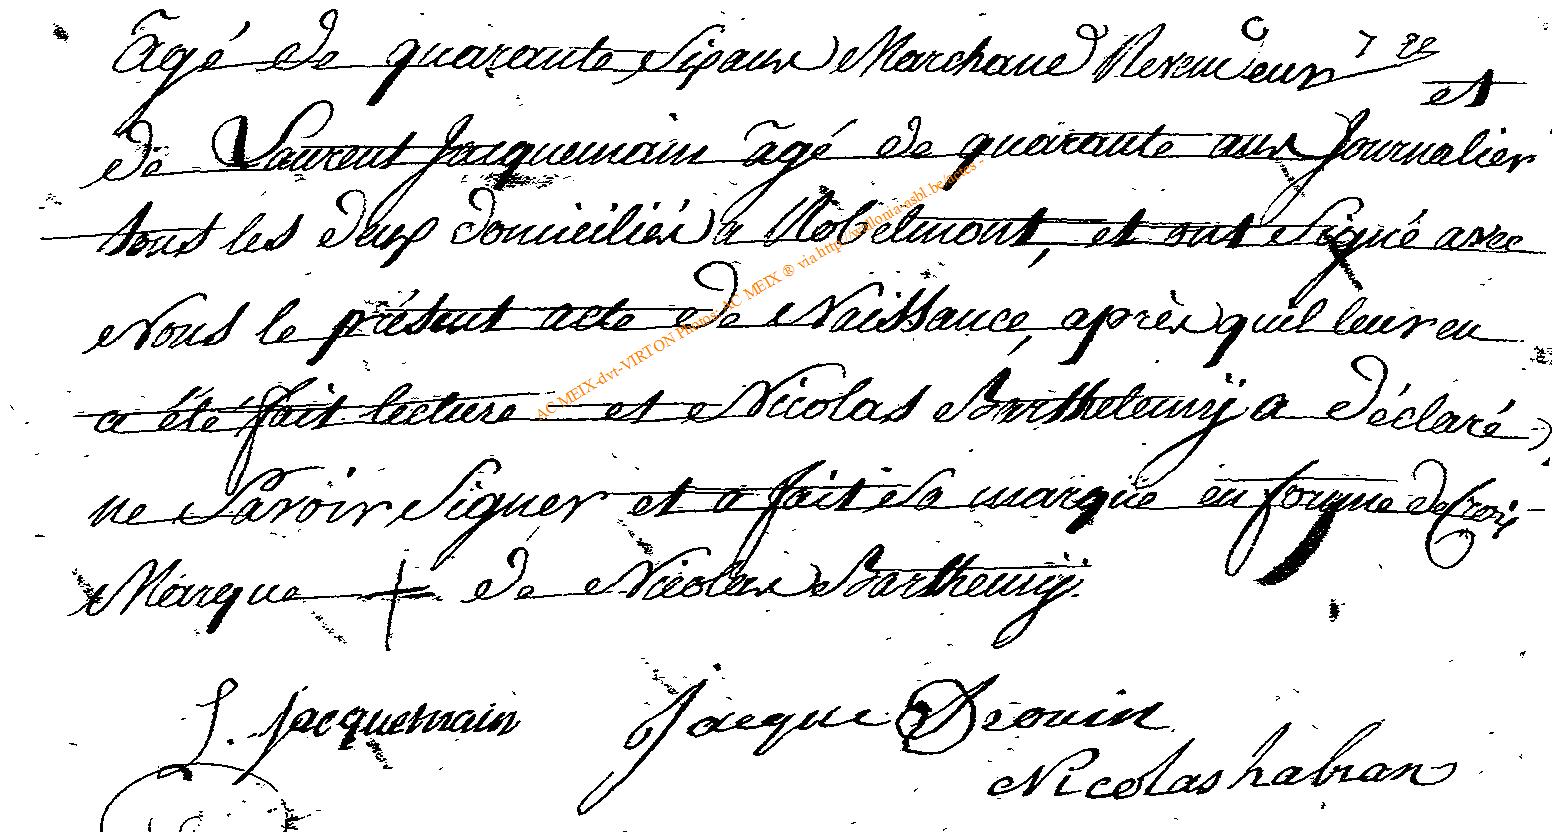 âgé de quarante Six ans Marchand Revendeur et
de Laurent Jacquemain âgé de quarante ans Journalier
tous les deux domiciliés a Robelmont, et ont Signé avec
Nous le présent acte de Naissance, après quil leur en
a été fait lecture et Nicolas Barthelemÿ a déclaré
ne Savoir Signer et a fait Sa marque en forme de Croix
Marque + de Nicolas Barthemÿ.
L. Jacquemain Jacque Drouin
Nicolas habran
AC MEIX-dvt-VIRTON Photos AC MEIX ® via http://wallonia-asbl.be/actes -